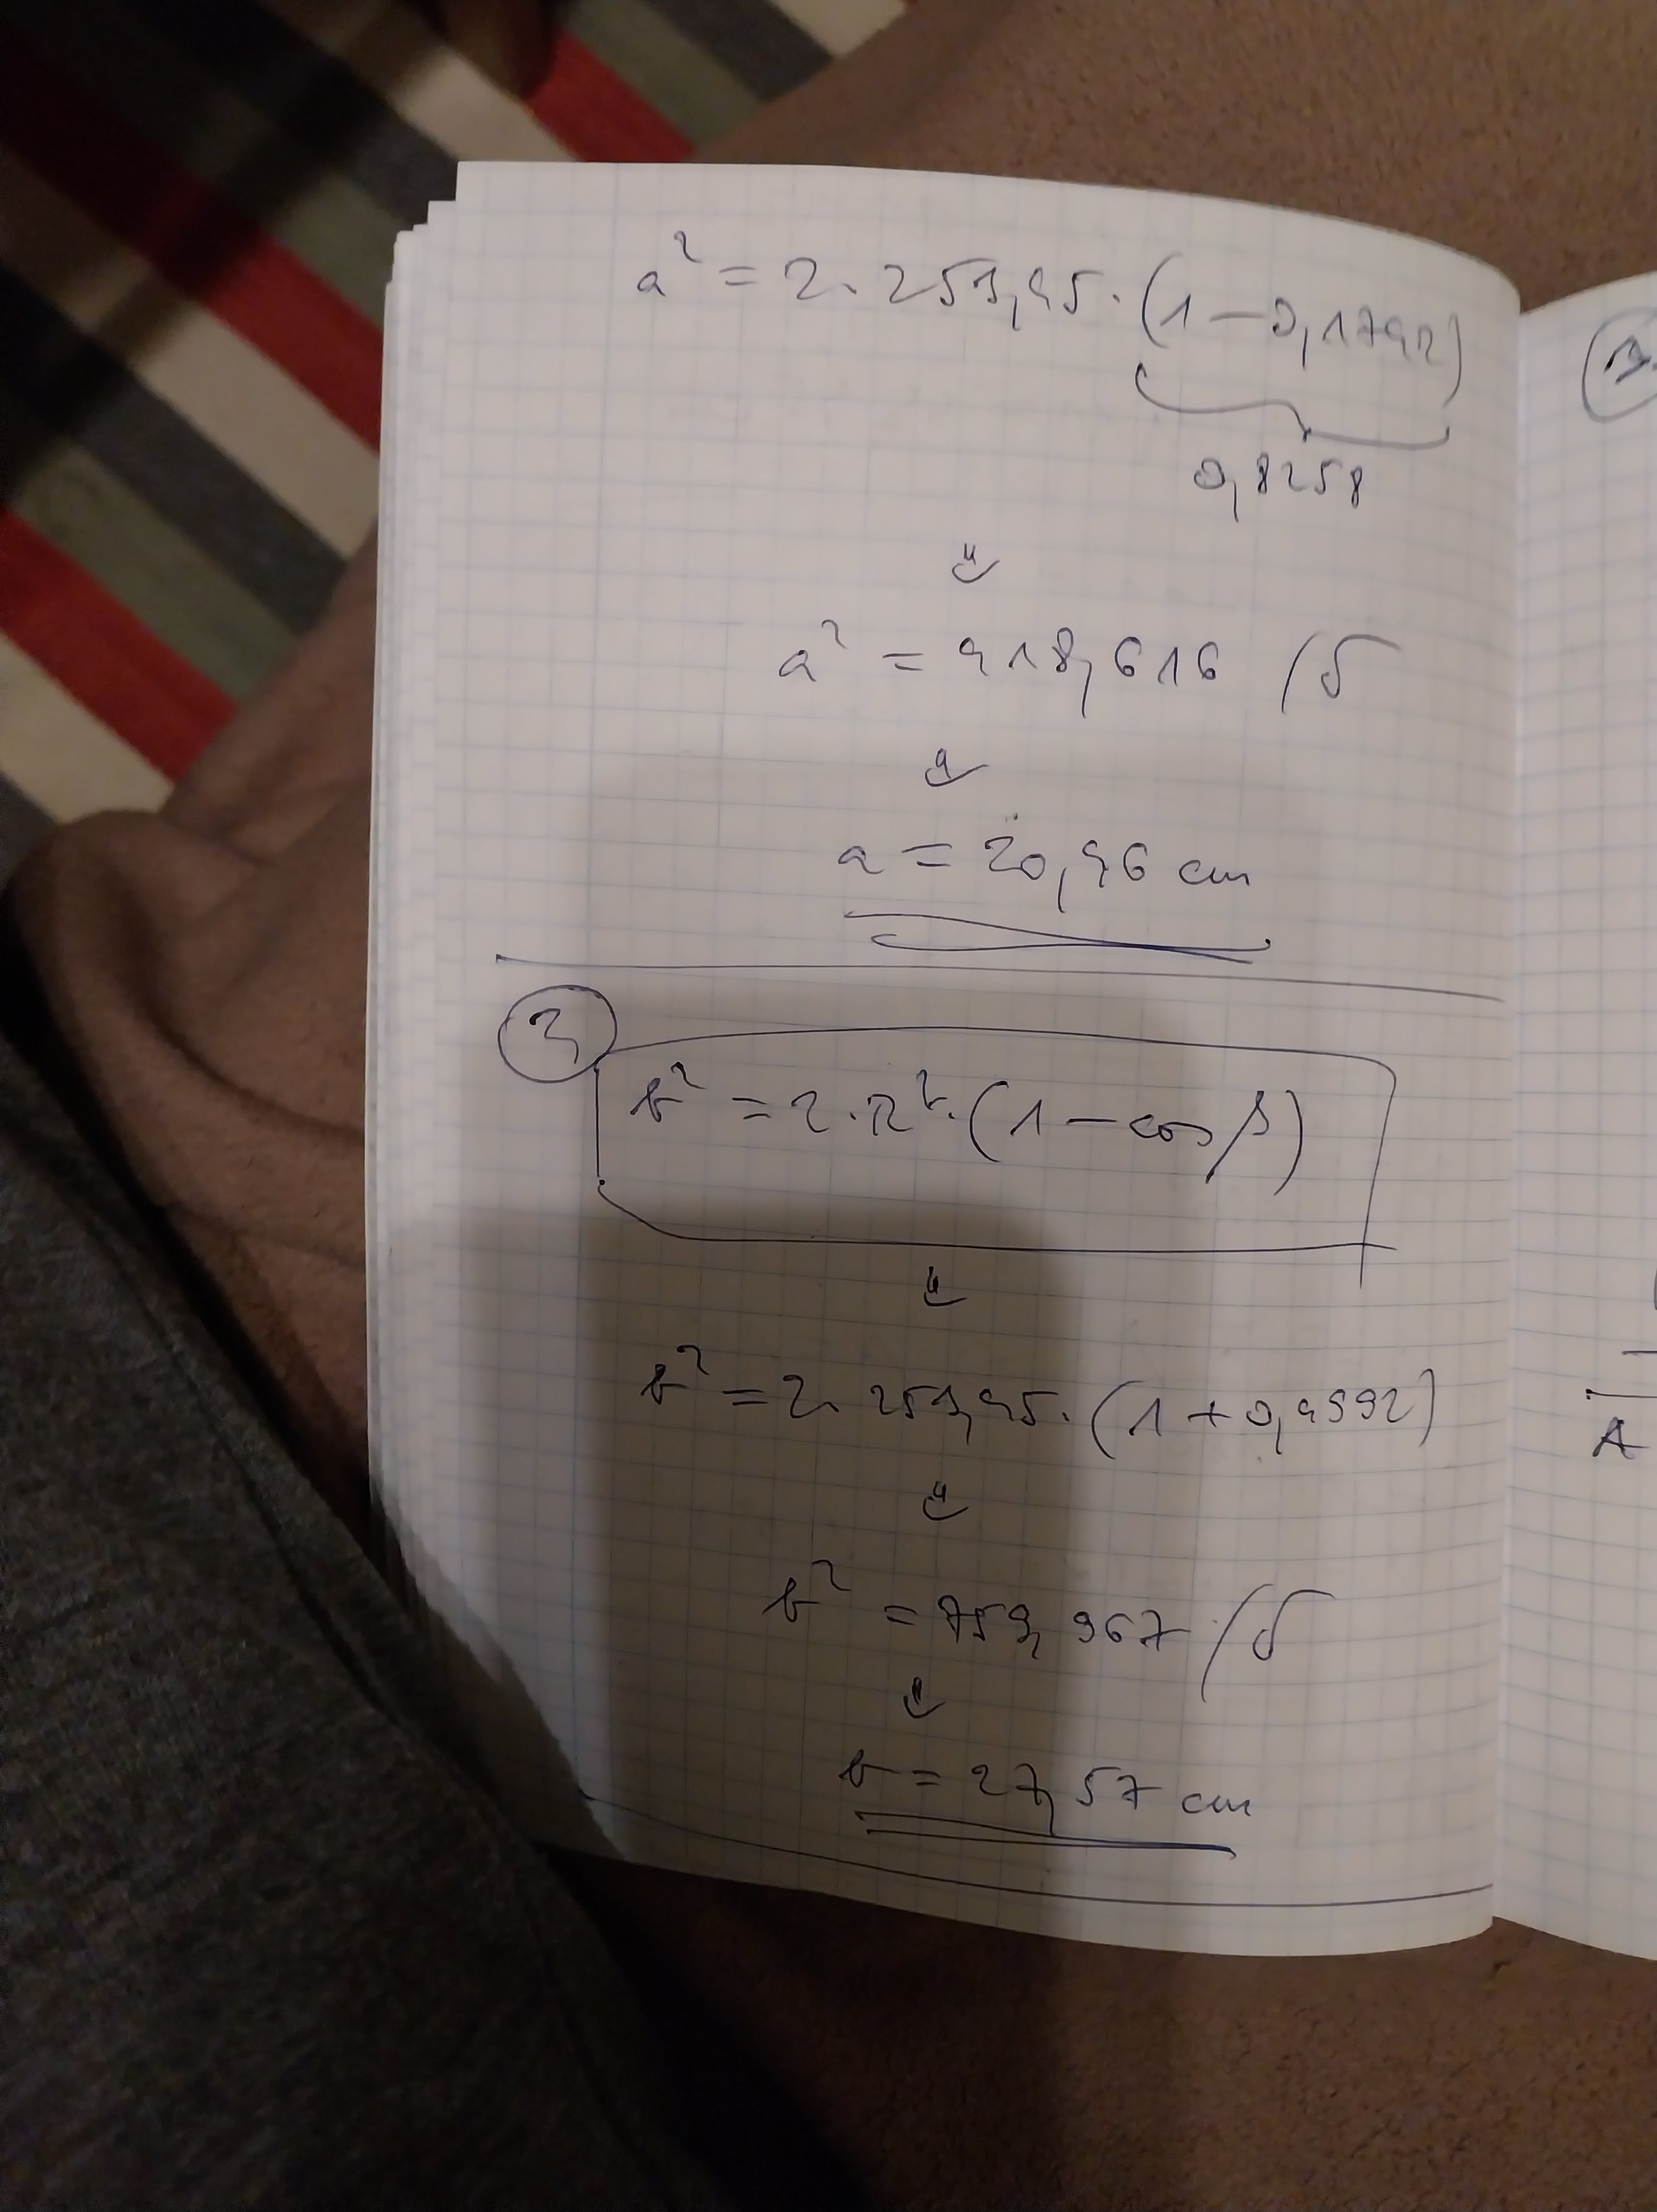 a² = 2 · 253,45 · (1 − 0,1742)
0,8258
a² = 418,616 /√
a = 20,46 cm
3
b² = 2 · R² · (1 − cos β)
b² = 2 · 253,45 · (1 + 0,4992)
b² = 759,967 /√
b = 27,57 cm
A